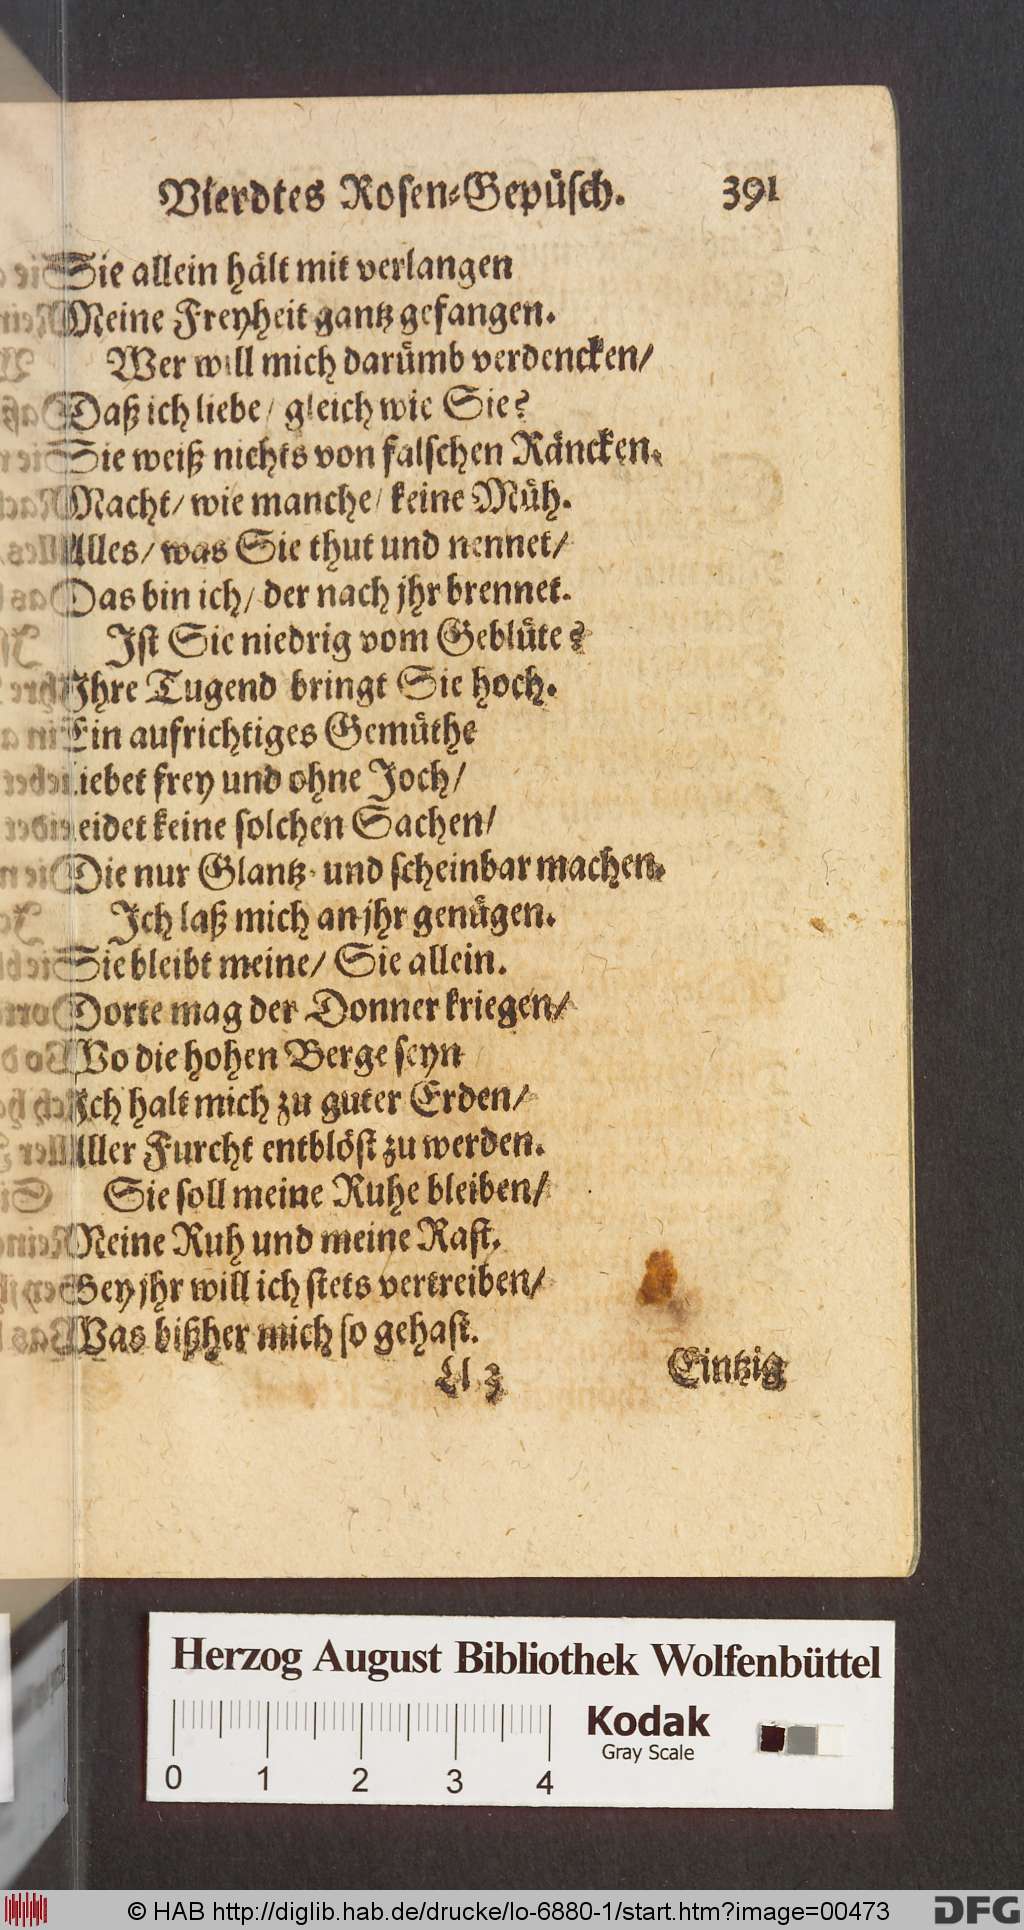 Vierdtes Rosen-Gepüsch. 391
Sie allein hält mit verlangen
Meine Freyheit gantz gefangen.
Wer will mich darümb verdencken/
Daß ich liebe/ gleich wie Sie?
Sie weiß nichts von falschen Räncken.
Macht/ wie manche/ keine Müh.
Alles/ was Sie thut und nennet/
Das bin ich/ der nach jhr brennet.
Ist Sie niedrig vom Geblüte?
Ihre Tugend bringt Sie hoch.
Ein aufrichtiges Gemüthe
Liebet frey und ohne Joch/
Leidet keine solchen Sachen/
Die nur Glantz und scheinbar machen.
Ich laß mich an jhr genügen.
Sie bleibt meine/ Sie allein.
Dorte mag der Donner kriegen/
Wo die hohen Berge seyn
Ich halt mich zu guter Erden/
Aller Furcht entblöst zu werden.
Sie soll meine Ruhe bleiben/
Meine Ruh und meine Rast.
Bey jhr will ich stets vertreiben/
Was bißher mich so gehast.
Eintzig
Herzog August Bibliothek Wolfenbüttel
Kodak
Gray Scale
0 1 2 3 4
© HAB http://diglib.hab.de/drucke/lo-6880-1/start.htm?image=00473
DFG